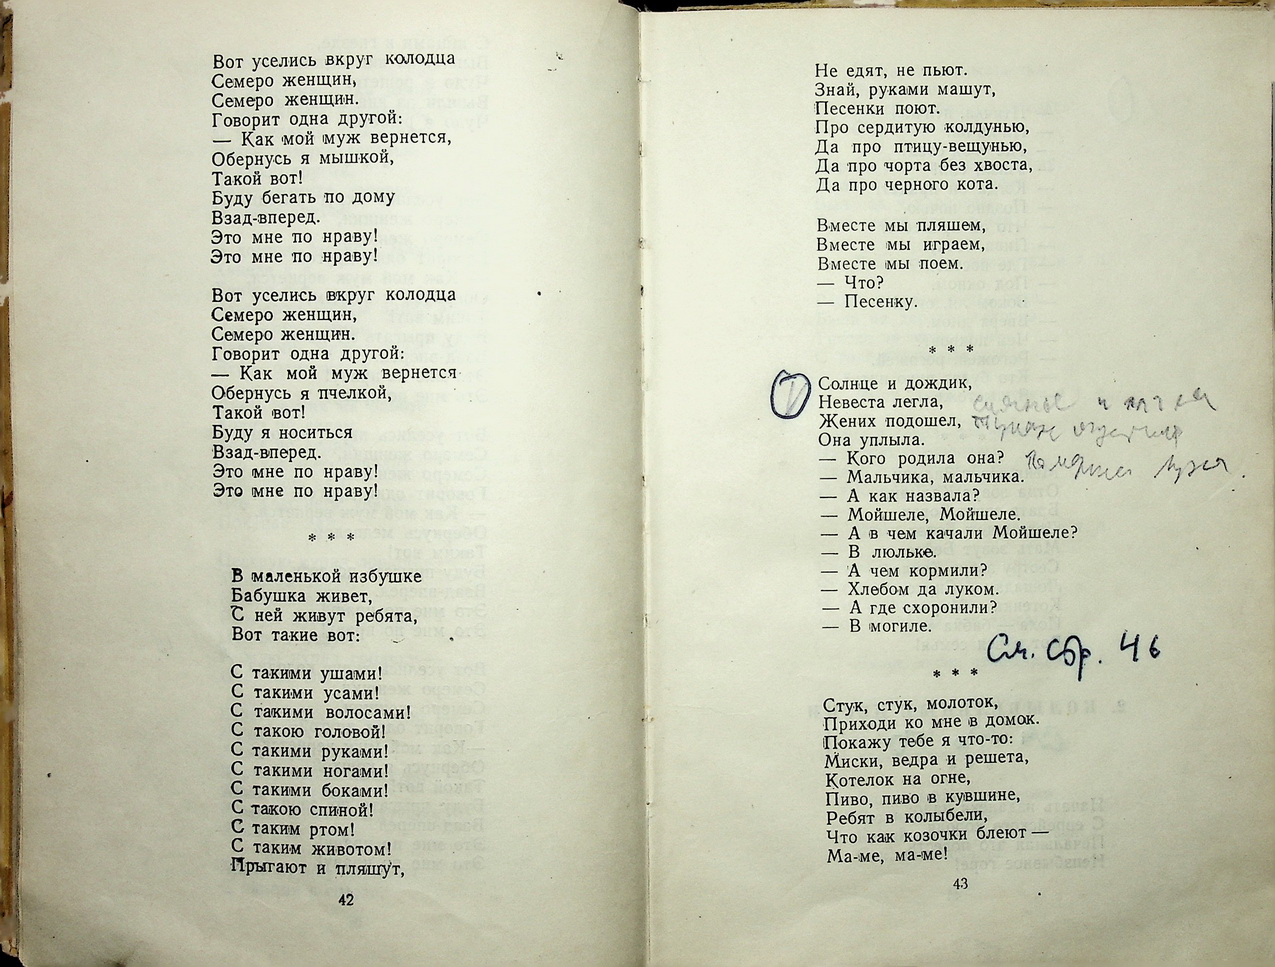 Вот уселись вкруг колодца
Семеро женщин,
Семеро женщин.
Говорит одна другой:
— Как мой муж вернется,
Обернусь я мышкой,
Такой вот!
Буду бегать по дому
Взад-вперед.
Это мне по нраву!
Это мне по нраву!
Вот уселись вкруг колодца
Семеро женщин,
Семеро женщин.
Говорит одна другой:
— Как мой муж вернется
Обернусь я пчелкой,
Такой вот!
Буду я носиться
Взад-вперед.
Это мне по нраву!
Это мне по нраву!
* * *
В маленькой избушке
Бабушка живет,
С ней живут ребята,
Вот такие вот:
С такими ушами!
С такими усами!
С такими волосами!
С такою головой!
С такими руками!
С такими ногами!
С такими боками!
С такою спиной!
С таким ртом!
С таким животом!
Прыгают и пляшут,
42
Не едят, не пьют.
Знай, руками машут,
Песенки поют.
Про сердитую колдунью,
Да про птицу-вещунью,
Да про чорта без хвоста,
Да про черного кота.
Вместе мы пляшем,
Вместе мы играем,
Вместе мы поем.
— Что?
— Песенку.
* * *
Солнце и дождик,
Невеста легла,
Жених подошел,
Она уплыла.
— Кого родила она?
— Мальчика, мальчика.
— А как назвала?
— Мойшеле, Мойшеле.
— А в чем качали Мойшеле?
— В люльке.
— А чем кормили?
— Хлебом да луком.
— А где схоронили?
— В могиле.
См. стр. 46
* * *
Стук, стук, молоток,
Приходи ко мне в домок.
Покажу тебе я что-то:
Миски, ведра и решета,
Котелок на огне,
Пиво, пиво в кувшине,
Ребят в колыбели,
Что как козочки блеют —
Ма-ме, ма-ме!
43